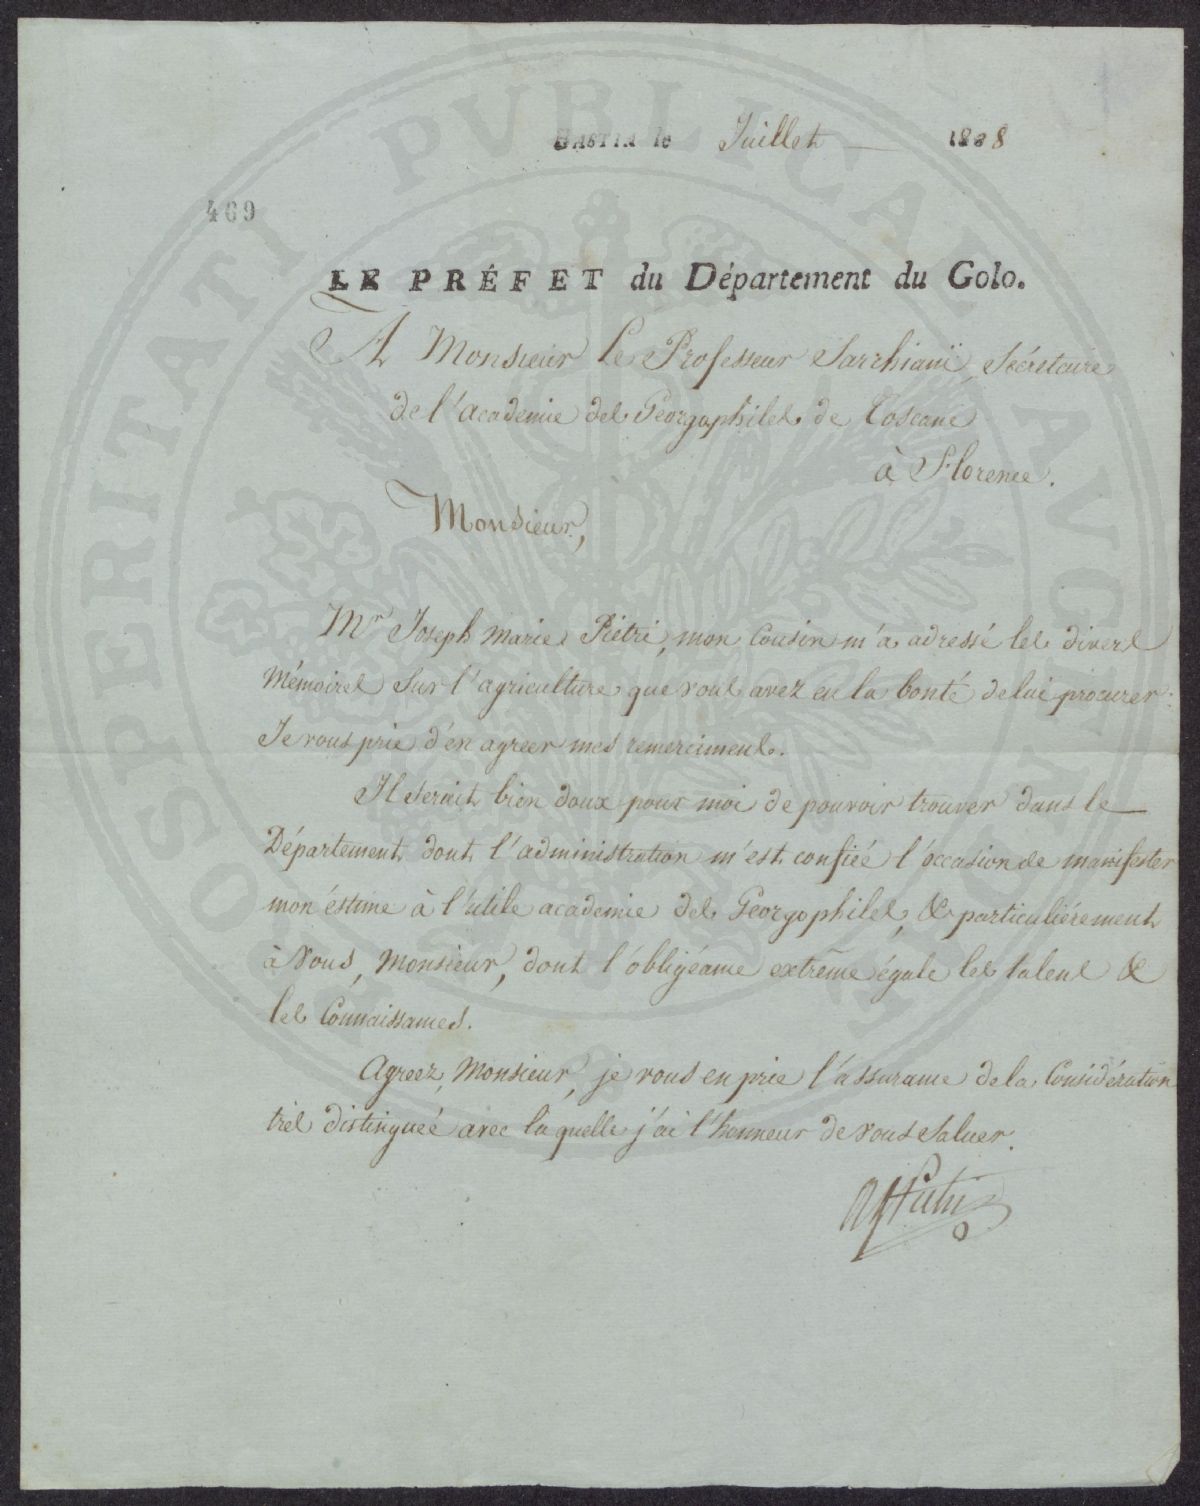 BASTIA le Juillet 1808
469
LE PRÉFET du Département du Golo.
A Monsieur le Professeur Sarchiani, Sécrétaire
de l'academie des Georgophiles de Toscane
à Florence.
Monsieur,
Mr Joseph Marie Pietri, mon Cousin m'a adressé les divers
Mémoires sur l'agriculture que vous avez eu la bonté de lui procurer.
Je vous prie d'en agreer mes remerciments.
Il serait bien doux pour moi de pouvoir trouver dans le
Département dont l'administration m'est confiée l'occasion de manifester
mon éstime à l'utile academie des Georgophiles, & particuliérement
à Vous, Monsieur, dont l'obligéance extrême égale les talens &
les Connaissances.
Agreez, Monsieur, je vous en prie l'assurance de la Considération
très distinguée avec laquelle j'ai l'honneur de Vous Saluer.
Pietri
PROSPERITATI PVBLICAE AVGENDAE